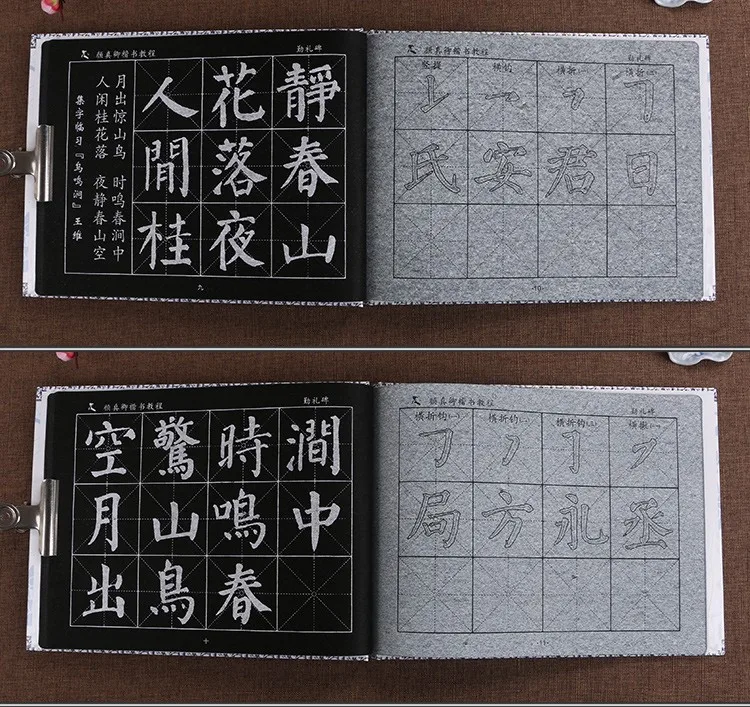 颜真卿楷书教程
勤礼碑
集字临习『鸟鸣涧』王维
人闲桂花落 夜静春山空
月出惊山鸟 时鸣春涧中
人閒桂
花落夜
靜春山
九
颜真卿楷书教程
勤礼碑
竖提 横钩 横折(一) 横折(二)
氏安君日
-10-
颜真卿楷书教程
勤礼碑
空月出
驚山鳥
時鳴春
澗中
十
颜真卿楷书教程
勤礼碑
横折钩(一) 横折钩 横折钩 横撇
局方永丞
11